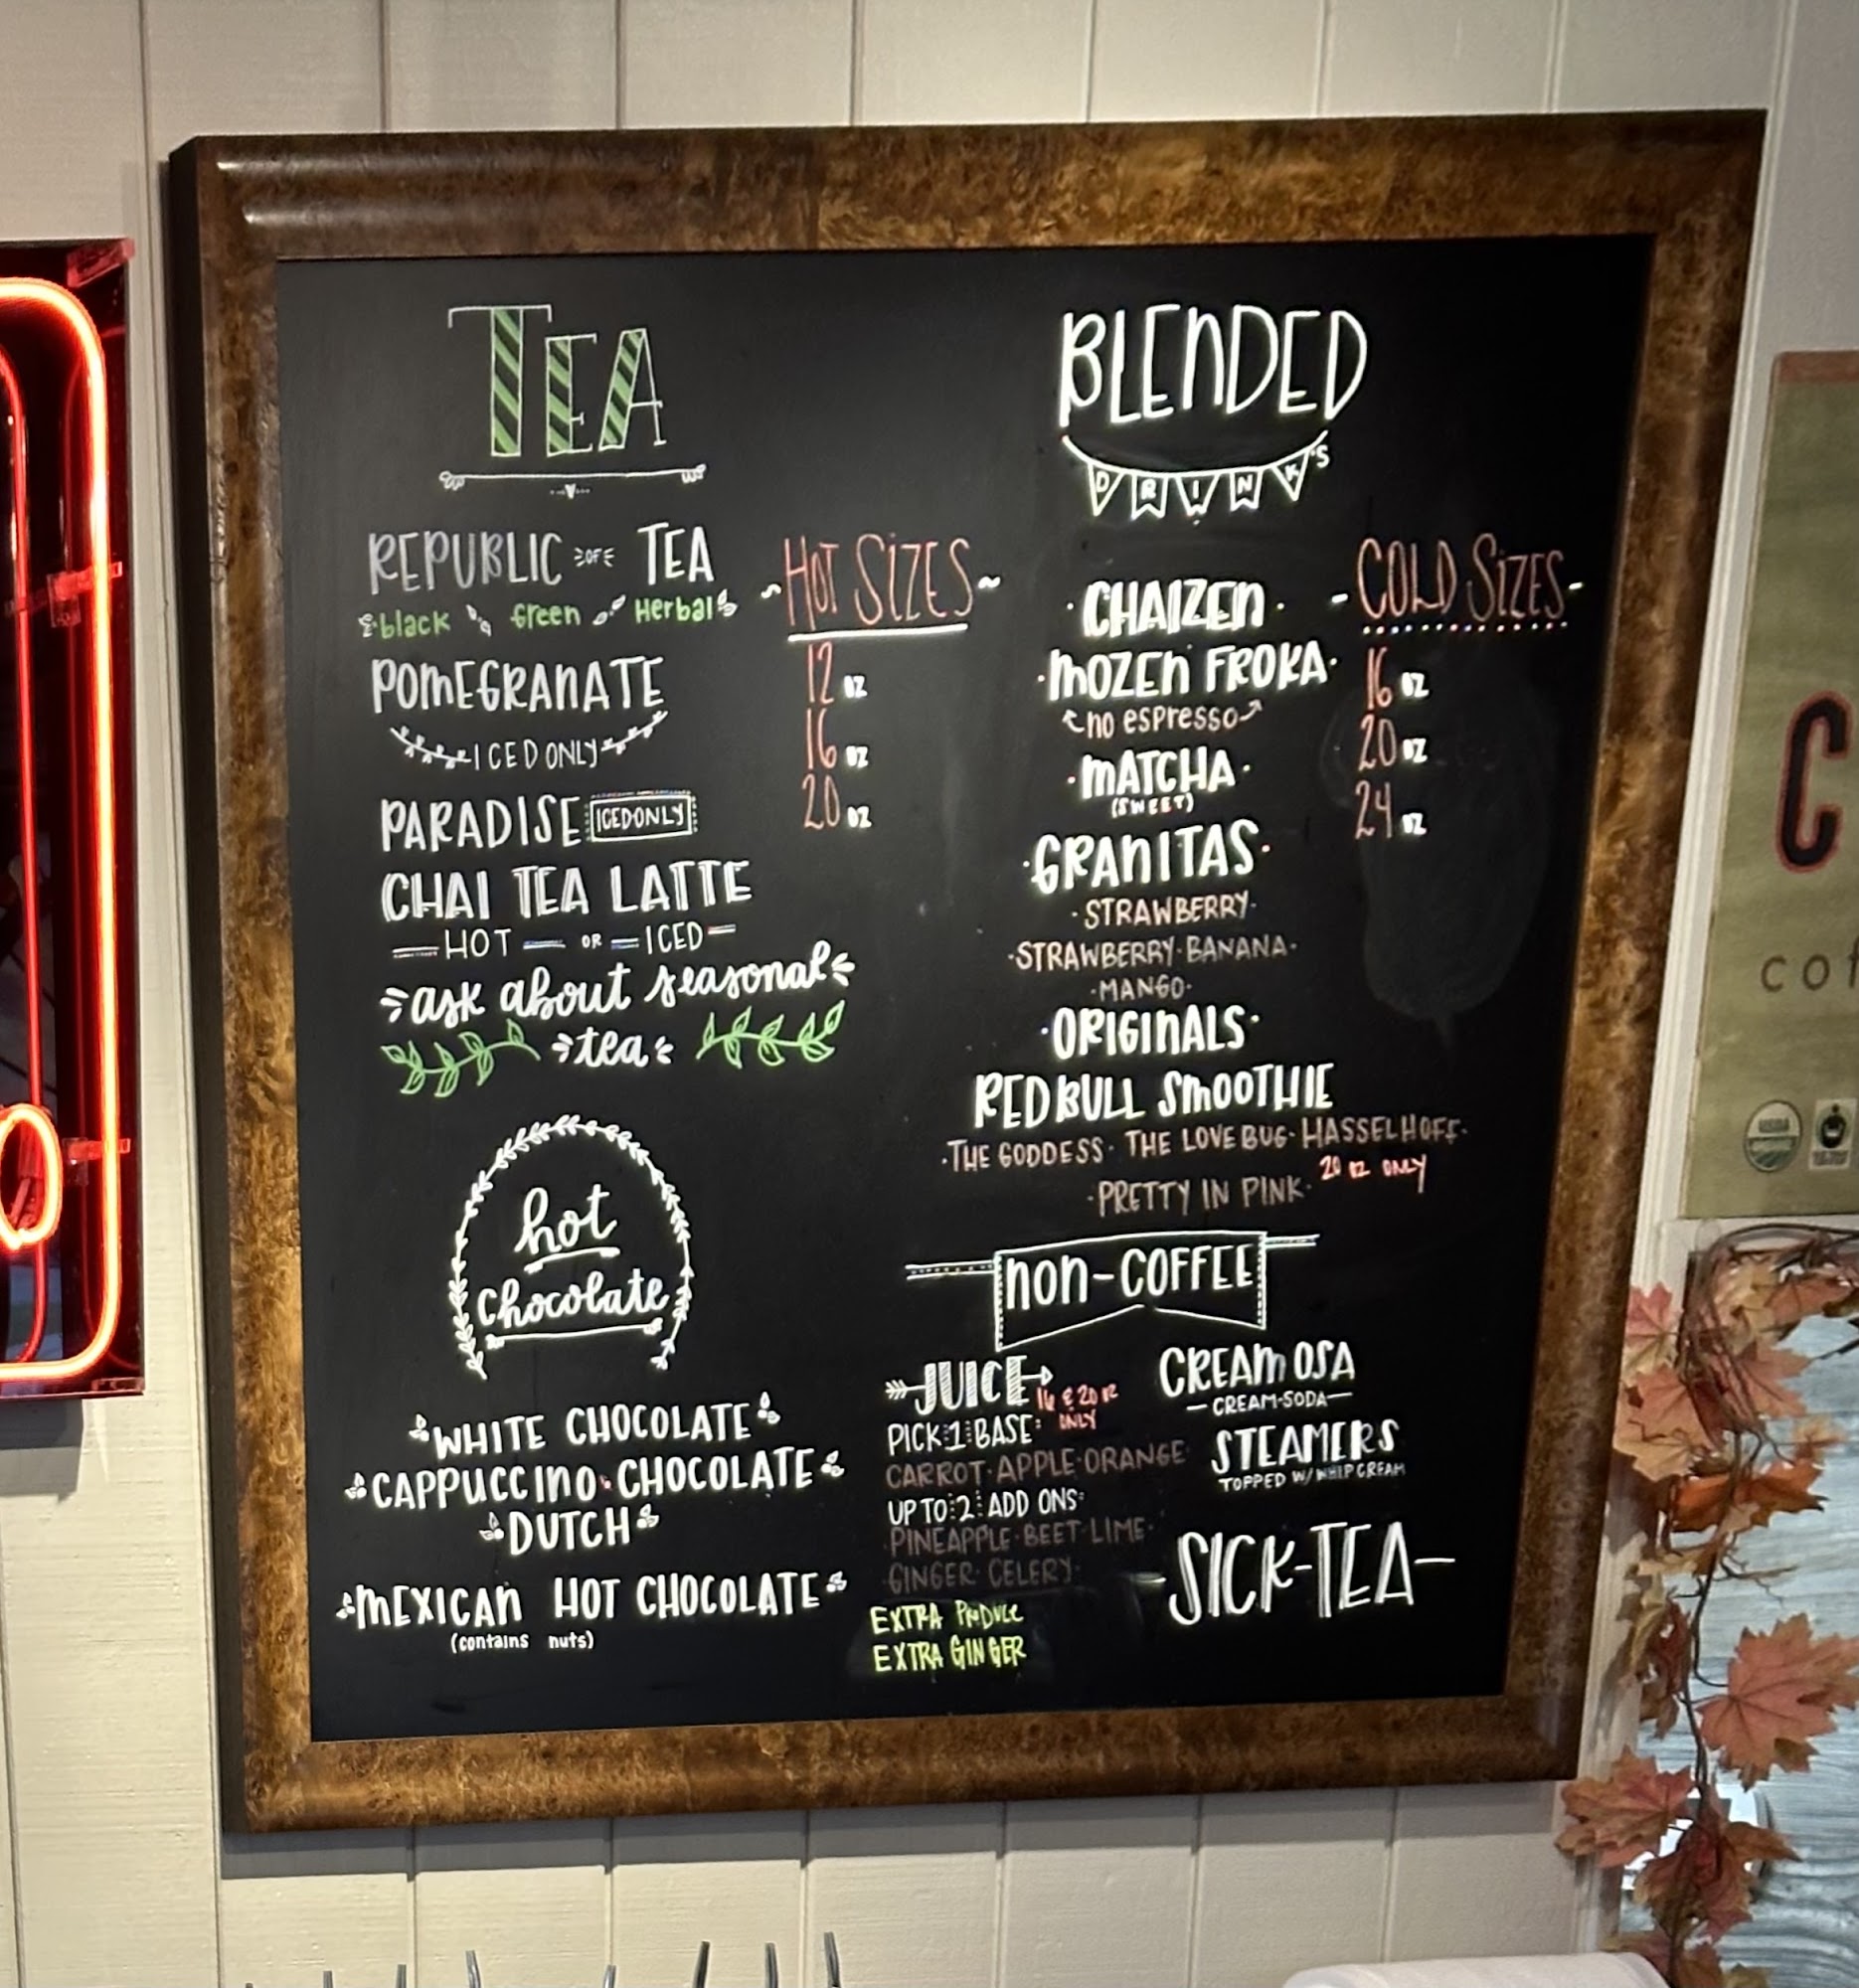 TEA
REPUBLIC OF TEA
black Green Herbal
POMEGRANATE
ICED ONLY
PARADISE ICED ONLY
CHAI TEA LATTE
HOT OR ICED
ask about seasonal
tea
HOT SIZES
12 oz
16 oz
20 oz
hot
chocolate
WHITE CHOCOLATE
CAPPUCCINO·CHOCOLATE
DUTCH
MEXICAN HOT CHOCOLATE
(contains nuts)
BLENDED
DRINK'S
·CHAIZEN·
·MOZEN FROKA·
no espresso
·MATCHA·
(SWEET)
·GRANITAS·
·STRAWBERRY·
·STRAWBERRY·BANANA·
·MANGO·
·ORIGINALS·
RED BULL SMOOTHIE
·THE GODDESS· THE LOVE BUG· HASSELHOFF·
20 oz ONLY
·PRETTY IN PINK·
-COLD SIZES-
16 oz
20 oz
24 oz
non-COFFEE
JUICE 16 & 20 oz
ONLY
PICK:1:BASE:
CARROT·APPLE·ORANGE
UP TO:2:ADD ONS:
PINEAPPLE·BEET·LIME·
GINGER·CELERY·
EXTRA PRODUCE
EXTRA GINGER
CREAMOSA
—CREAM-SODA—
STEAMERS
TOPPED W/ WHIP CREAM
-SICK-TEA-
C
cof
USDA